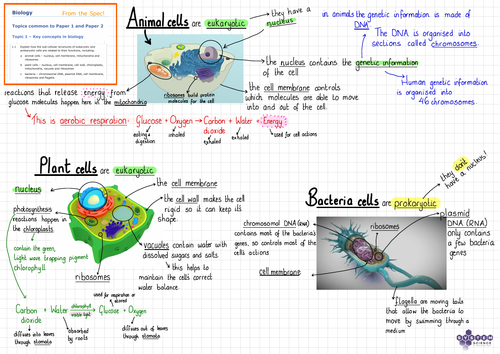 Biology
From the Spec!
Topics common to Paper 1 and Paper 2
Topic 1 – Key concepts in biology
1.1 Explain how the sub-cellular structures of eukaryotic and
prokaryotic cells are related to their functions, including:
a animal cells – nucleus, cell membrane, mitochondria and
ribosomes
b plant cells – nucleus, cell membrane, cell wall, chloroplasts,
mitochondria, vacuole and ribosomes
c bacteria – chromosomal DNA, plasmid DNA, cell membrane,
ribosomes and flagella
Animal cells are eukaryotic
they have a
nucleus
in animals the genetic information is made of
DNA
The DNA is organised into
sections called chromosomes.
the nucleus contains the genetic information
of the cell
Human genetic information
is organised into
46 chromosomes.
the cell membrane controls
which molecules are able to move
into and out of the cell.
ribosomes build protein
molecules for the cell
reactions that release energy from
glucose molecules happen here in the mitochondria
This is aerobic respiration: Glucose + Oxygen → Carbon dioxide + Water + Energy
eating & digestion
inhaled
exhaled
exhaled
used for cell actions
Plant cells are eukaryotic
nucleus
photosynthesis
reactions happen in
the chloroplasts
contain the green,
light wave trapping pigment
chlorophyll
the cell membrane
the cell wall makes the cell
rigid so it can keep its
shape.
vacuoles contain water with
dissolved sugars and salts
this helps to
maintain the cells correct
water balance
ribosomes
used for respiration or
stored
Carbon dioxide + Water chlorophyll visible light → Glucose + Oxygen
diffuses into leaves
through stomata
absorbed
by roots
diffuses out of leaves
through stomata
Bacteria cells are prokaryotic
they don't
have a nucleus!
chromosomal DNA (RNA)
contains most of the bacteria's
genes, so controls most of the
cells actions
cell membrane
ribosomes
plasmid
DNA (RNA)
only contains
a few bacteria
genes
flagella are moving tails
that allow the bacteria to
move by swimming through a
medium
SYSTEM
SCIENCE